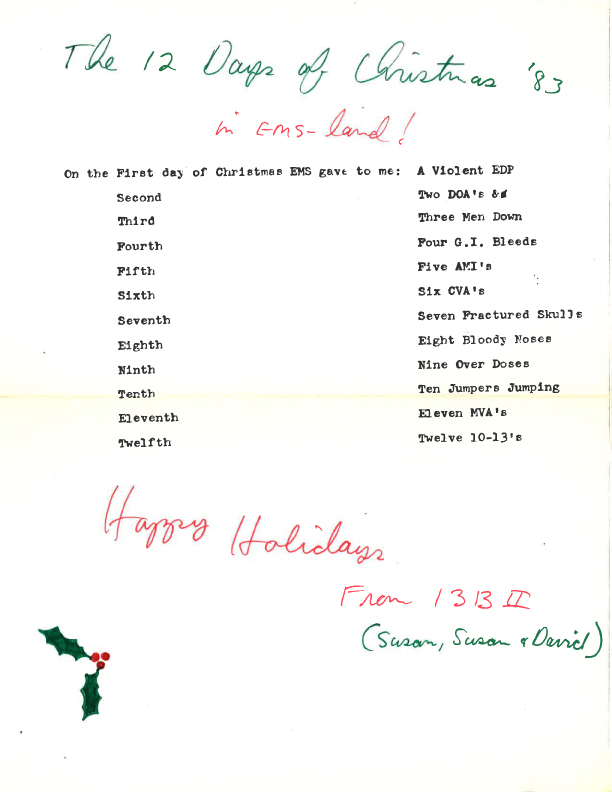 The 12 Days of Christmas '83
in EMS-land!
On the First day of Christmas EMS gave to me: A Violent EDP
Second Two DOA's &
Third Three Men Down
Fourth Four G.I. Bleeds
Fifth Five AMI's
Sixth Six CVA's
Seventh Seven Fractured Skulls
Eighth Eight Bloody Noses
Ninth Nine Over Doses
Tenth Ten Jumpers Jumping
Eleventh Eleven MVA's
Twelfth Twelve 10-13's
Happy Holidays
From 13B II
(Susan, Susan & David)